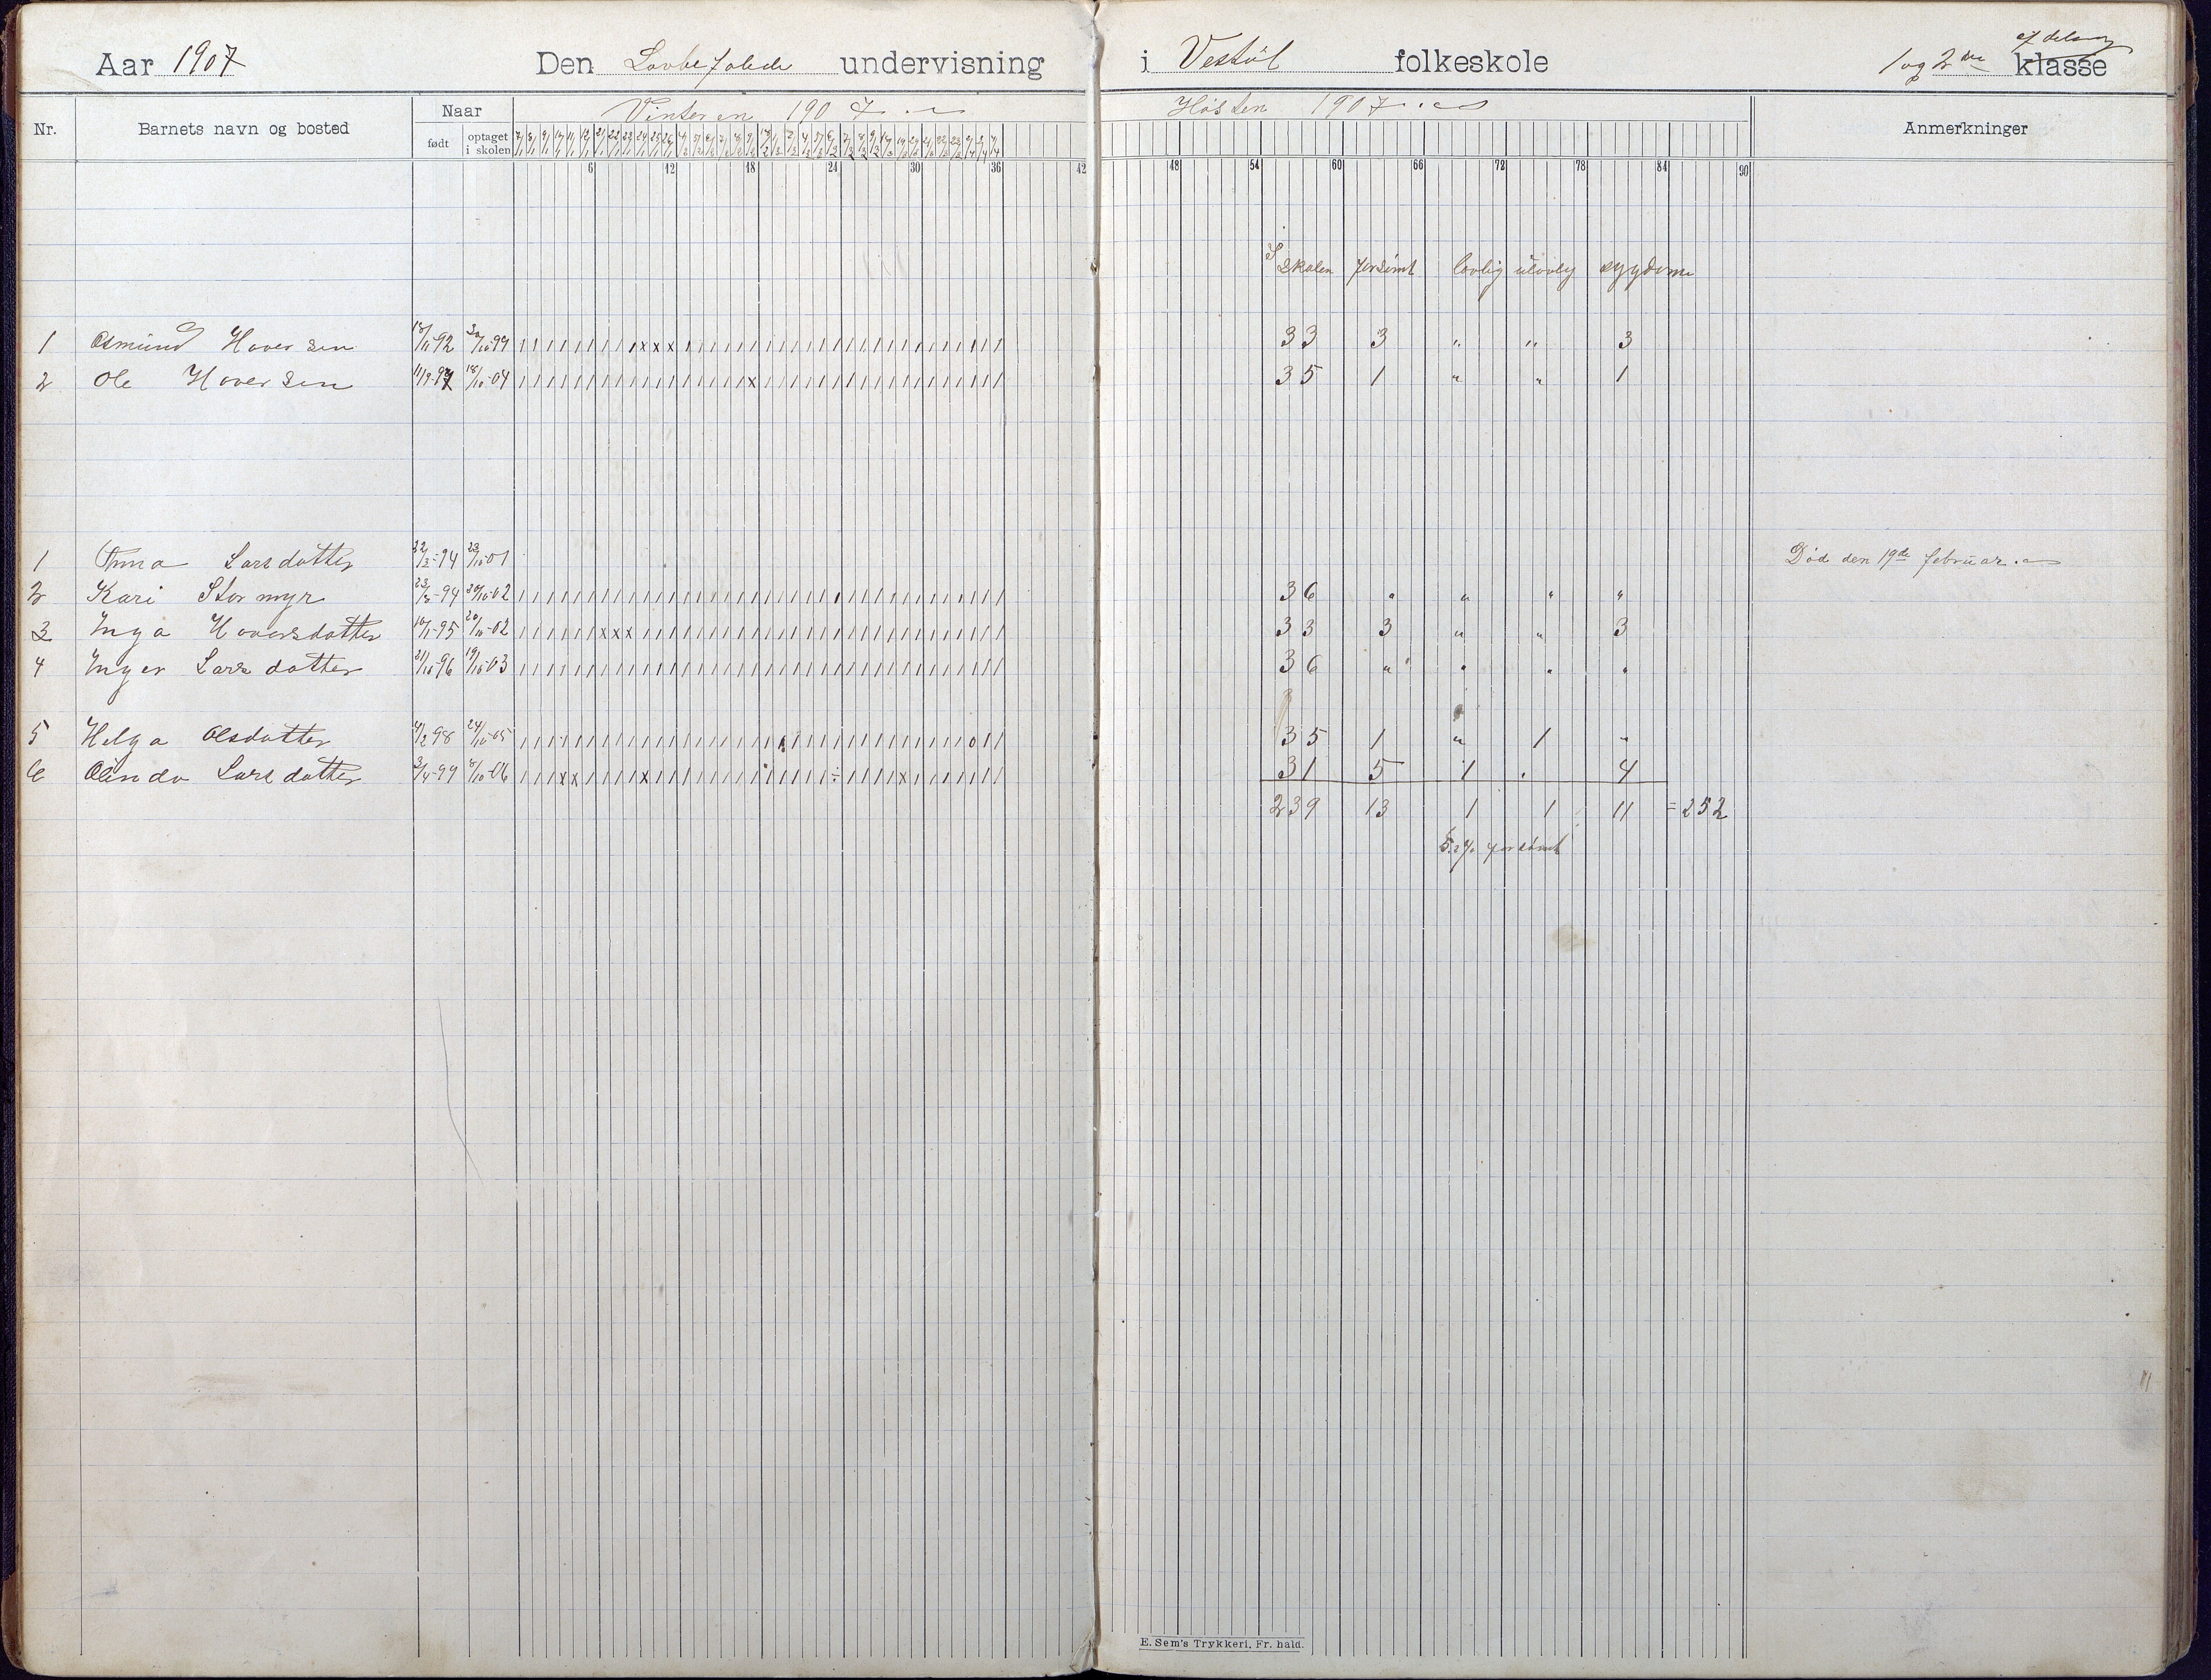 Aar 1907 Den Lovbefalede undervisning i Vestöl folkeskole 1 og 2den klasse afdeling
Nr. Barnets navn og bosted Naar født optaget i skolen Vinteren 1907 Høsten 1907 Anmerkninger
6 12 18 24 30 36 42 48 54 60 66 72 78 84 90
I Skolen forsömt lovlig ulovlig sygdom
1 Osmund Haversen 18/11-92 30/10-99 33 3 " " 3
2 Ole Haversen 11/9-97 18/10-04 35 1 " " 1
1 Anna Larsdatter 22/3-94 23/10-01 Död den 19de februar
2 Kari Stormyr 23/8-94 20/10-02 36 " " " "
3 Inga Haversdatter 10/1-95 20/10-02 33 3 " " 3
4 Inger Larsdatter 21/10-96 19/10-03 36 " " " "
5 Helga Olsdatter 4/2 98 24/10-05 35 1 " 1 "
6 Olinda Larsdatter 3/4-99 8/10-06 31 5 1 . 4
239 13 1 1 11 = 252
5.2% forsömt
E. Sem's Trykkeri, Fr. hald.